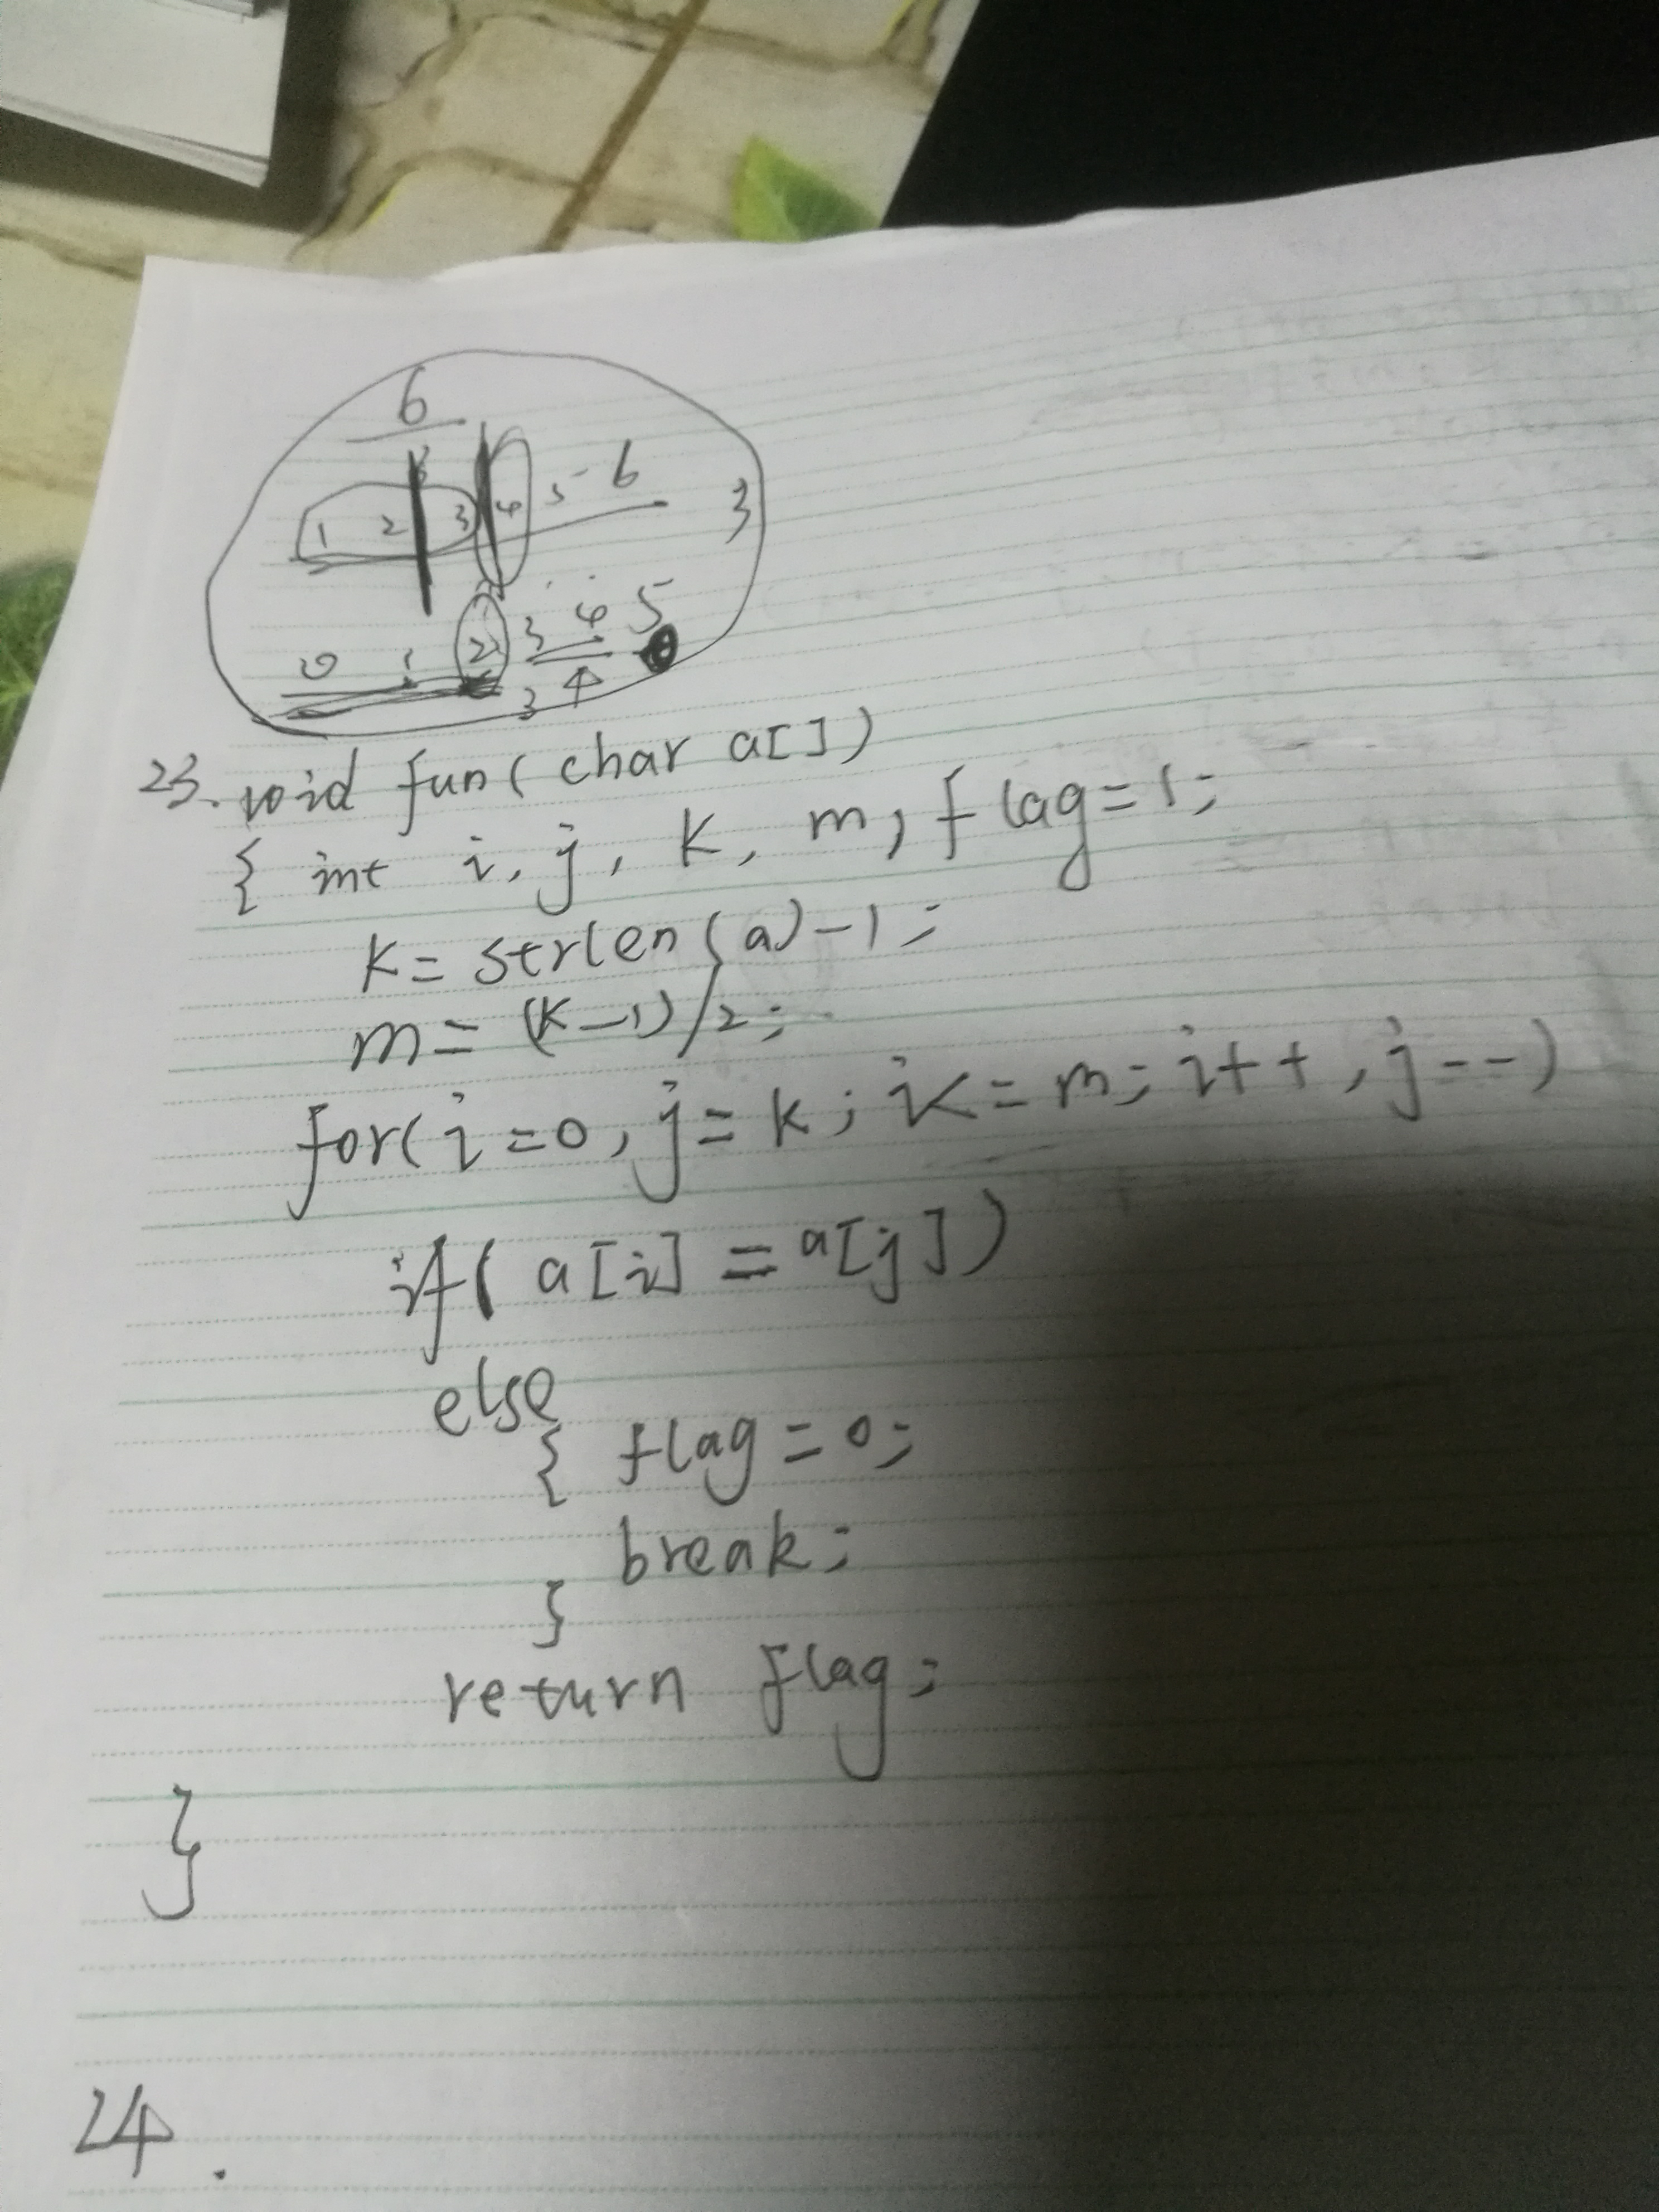 6
1 2 3 4 5 6 3
0 1 2 3 4 5
3 4
23. void fun(char a[])
{ int i, j, k, m, flag=1;
k=strlen(a)-1;
m=(k-1)/2;
for(i=0, j=k; i<=m; i++, j--)
if( a[i] = a[j])
else
{ flag=0;
break;
}
return flag;
}
24.